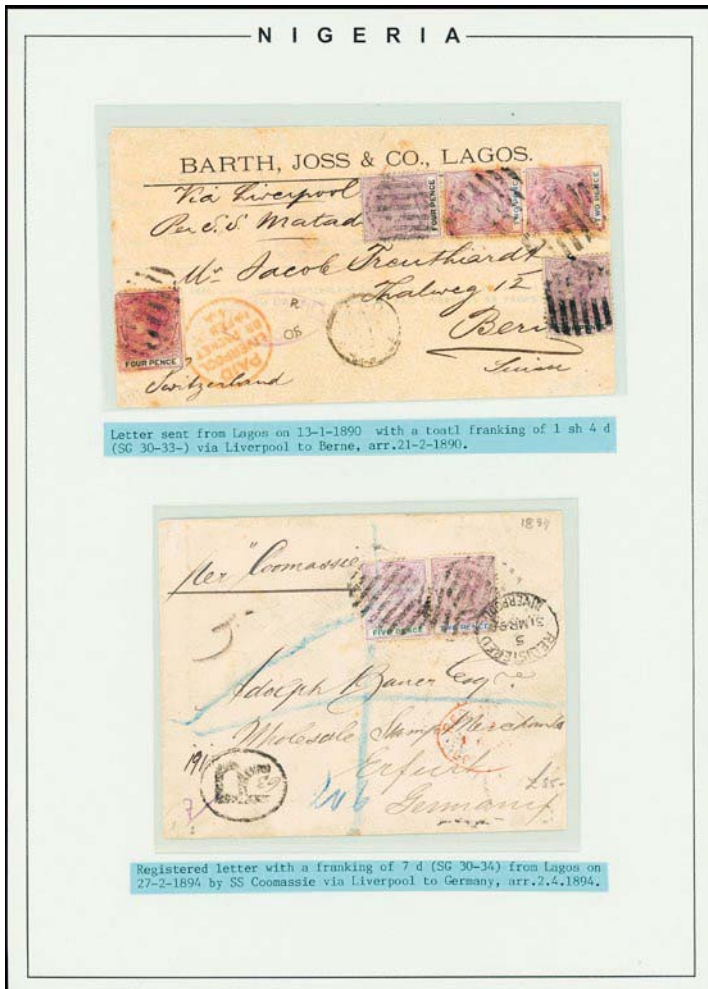 NIGERIA
BARTH, JOSS & CO., LAGOS.
Via Liverpool
Per S.S. Matad
FOUR PENCE
TWO PENCE
TWO PENCE
Mr. Jacob
Thalweg 12
Bern
Suisse
FOUR PENCE
PAID
LIVERPOOL
BR PACKET
R
05
Switzerland
Letter sent from Lagos on 13-1-1890 with a toatl franking of 1 sh 4 d
(SG 30-33-) via Liverpool to Berne, arr.21-2-1890.
1894
per "Coomassie
FIVE PENCE
TWO PENCE
REGISTERED
5
31 MR 94
LIVERPOOL
Adolph Bauer Esqre
Wholesale Stamp Merchants
Erfurt
Germany
191
R
206
£85-
Registered letter with a franking of 7 d (SG 30-34) from Lagos on
27-2-1894 by SS Coomassie via Liverpool to Germany, arr.2.4.1894.